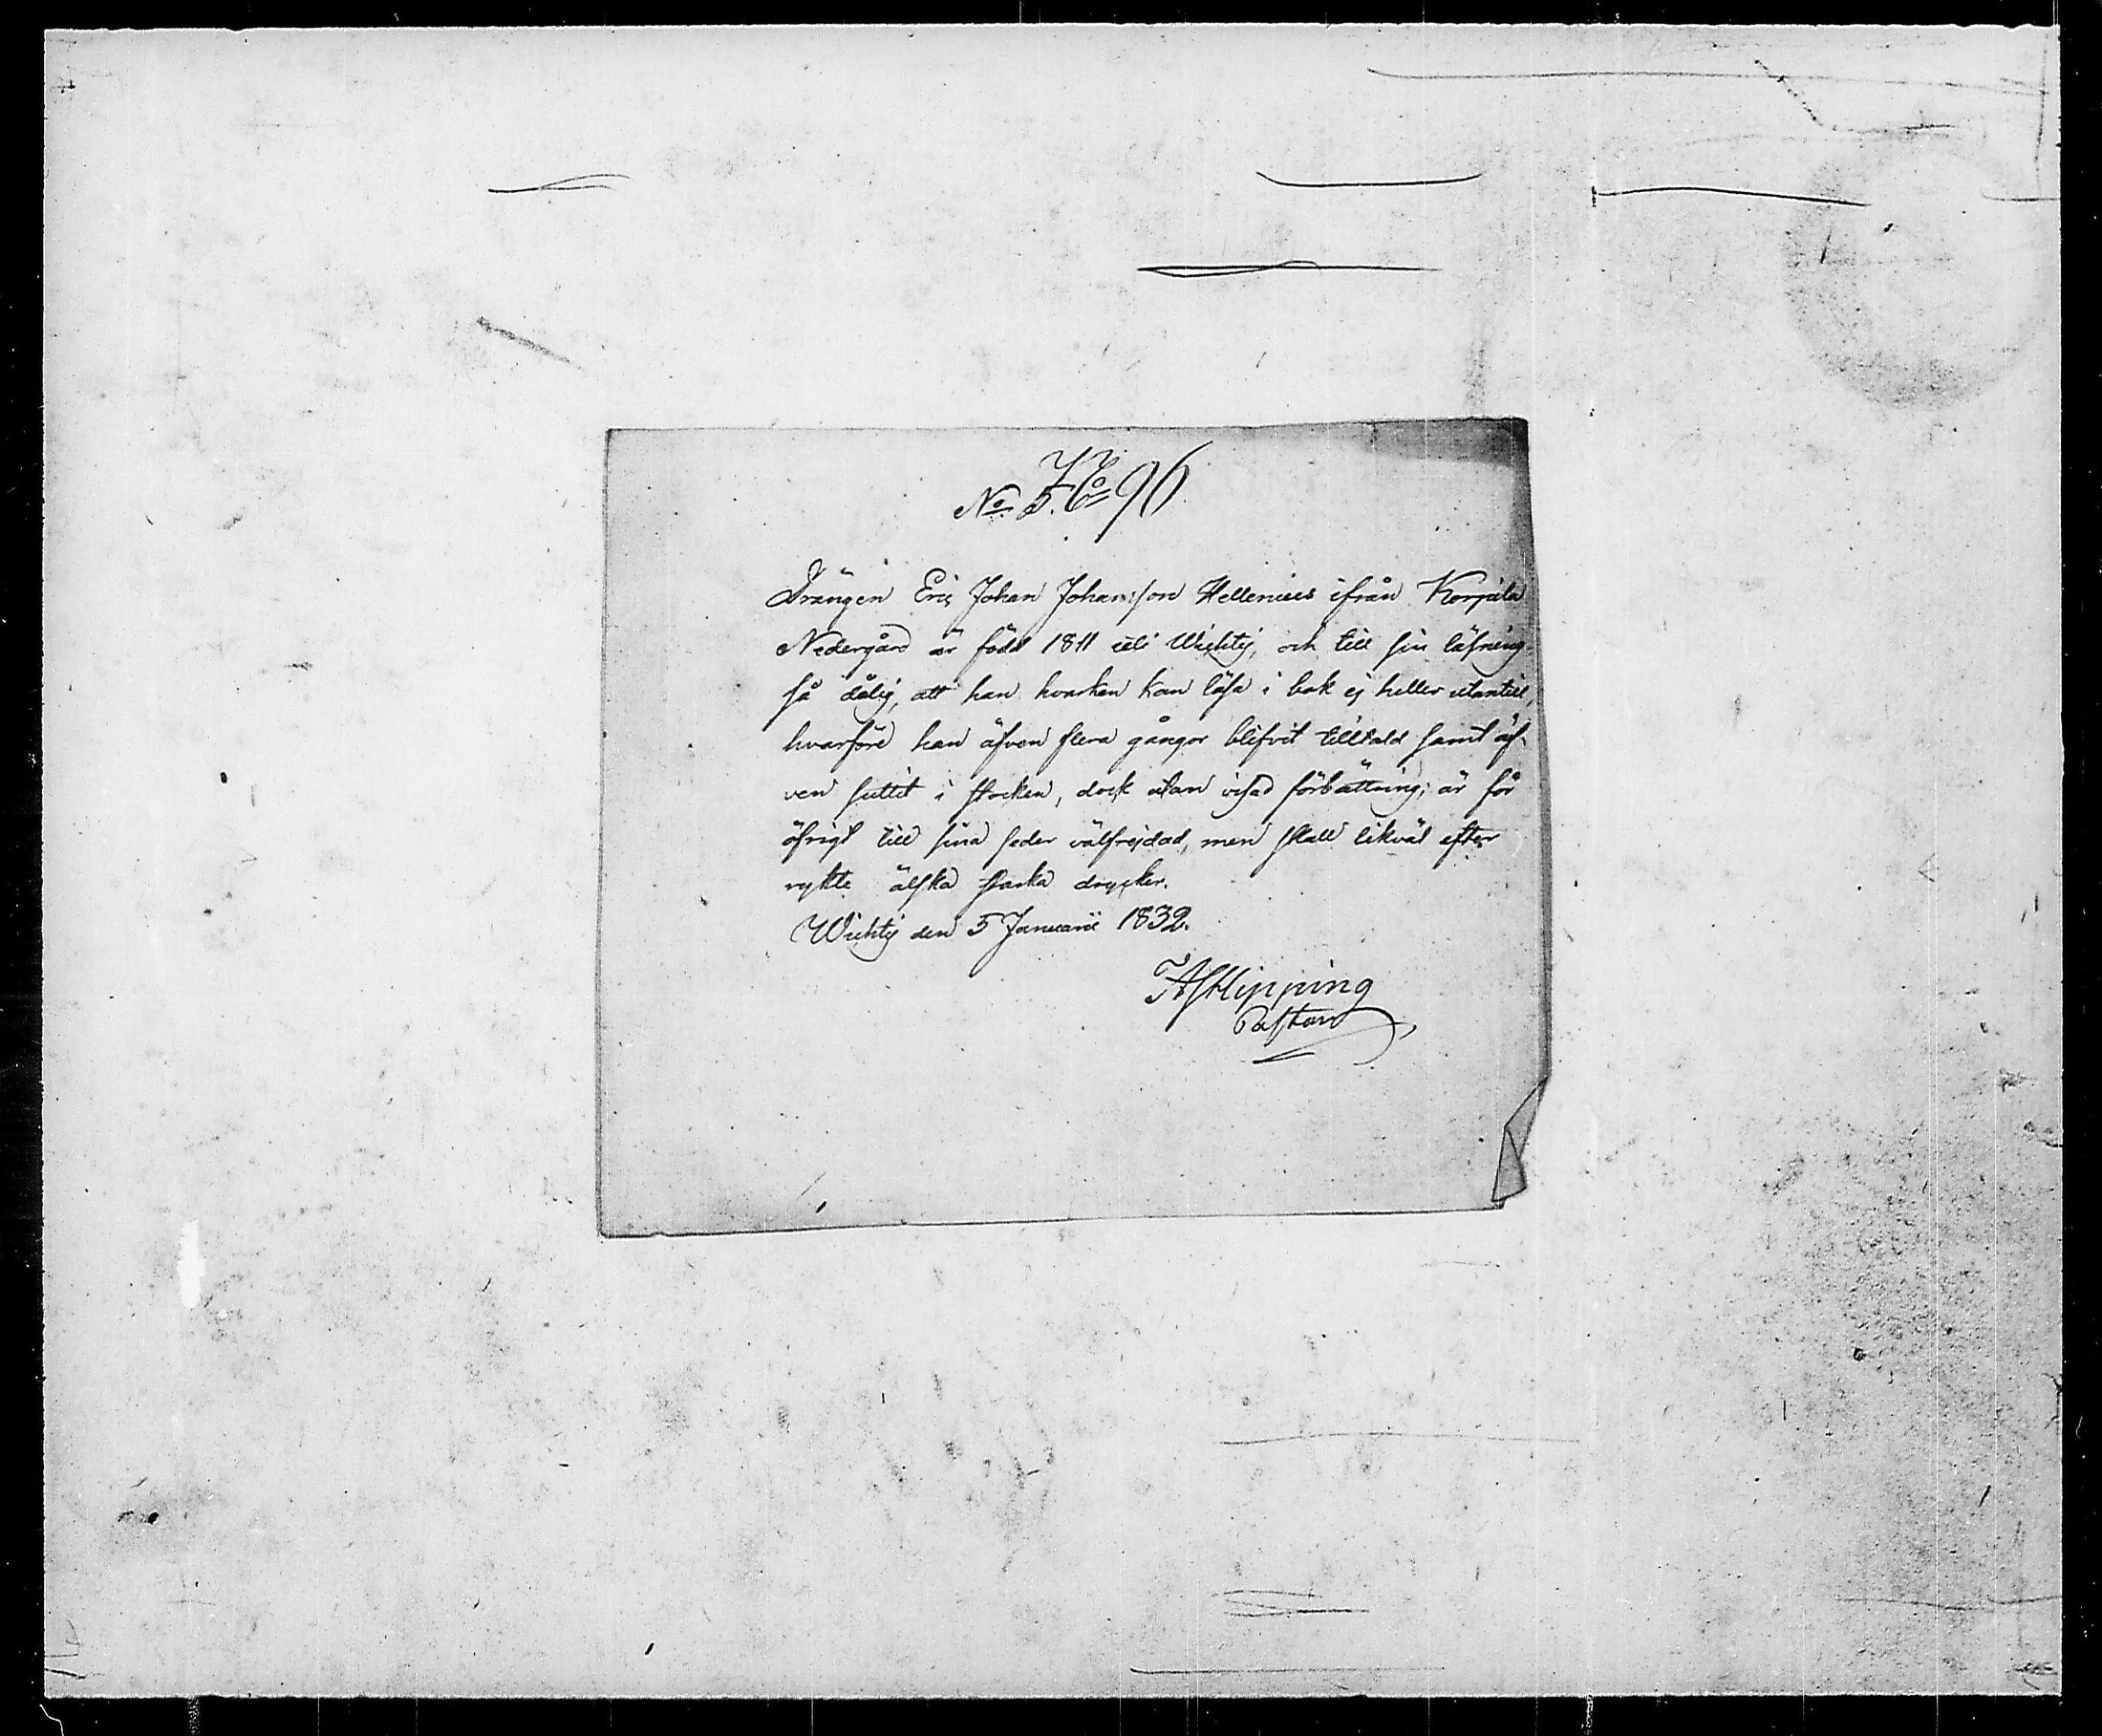 No 5. 96.
Drängen Eric Johan Johansson Hellenius ifrån Korpila
Nedergård är född 1811 uti Wichtij, och till sin läsning
så dålig, att han hvarken kan läsa i bok ej heller utantill,
hvarföre han äfven flera gångor blifvit tilltald samt äf-
ven suttit i stocken, dock utan visad förbättring; är för
öfrigt till sina seder välfrejdad, men skall likväl efter
rykte älska starka drycker.
Wichtij den 5 Januarii 1832.
Hipping
Pastor